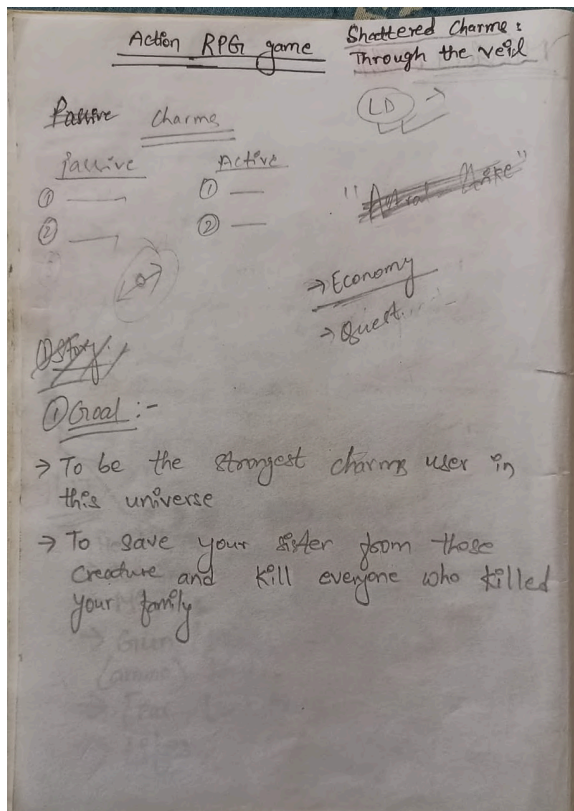 Action RPG game
Shattered Charms:
Through the veil
LD →
Passive Charms
Passive Active
① — ① —
② — ② —
→ Economy
→ Quest
① Story
① Goal :-
→ To be the strongest charms user in
this universe
→ To save your sister from those
Creature and kill everyone who killed
your family